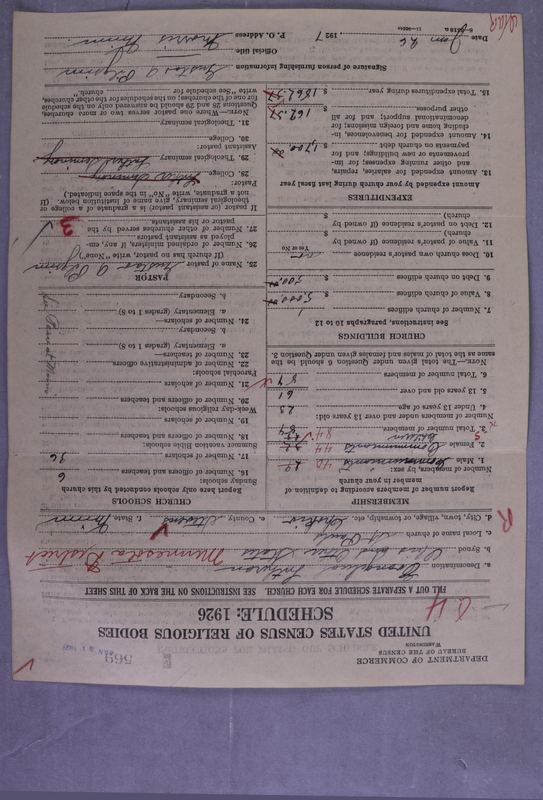 DEPARTMENT OF COMMERCE
BUREAU OF THE CENSUS
WASHINGTON
569
UNITED STATES CENSUS OF RELIGIOUS BODIES
SCHEDULE: 1926
FILL OUT A SEPARATE SCHEDULE FOR EACH CHURCH. SEE INSTRUCTIONS ON THE BACK OF THIS SHEET
a. Denomination Evangelical Lutheran
b. Synod Ohio and Other States Minnesota District
c. Local name of church St Pauls
d. City, town, village, or township, etc.
e. County Stevens f. State Minn
MEMBERSHIP
Report number of members according to definition of member in your church
Number of members by sex:
1. Male
2. Female
3. Total number of members
Number of members under and over 13 years old:
4. Under 13 years of age 23
5. 13 years old and over 61
6. Total number of members 84
NOTE.—The total given under Question 6 should be the same as the total of males and females given under Question 3.
CHURCH BUILDINGS
See instructions, paragraphs 10 to 12
7. Number of church edifices 1
8. Value of church edifices $ 5000.00
9. Debt on church edifices $ 500.00
10. Does church own pastor's residence Yes or No
11. Value of pastor's residence (if owned by church) $
12. Debt on pastor's residence (if owned by church) $
EXPENDITURES
Amount expended by your church during last fiscal year
13. Amount expended for salaries, repairs, and other running expenses; for improvements or new buildings; and for payments on church debt $ 1,700.00
14. Amount expended for benevolences, including home and foreign missions; for denominational support; and for all other purposes $ 167.37
15. Total expenditures during year $ 1867.37
CHURCH SCHOOLS
Report here only schools conducted by this church
Sunday schools:
16. Number of officers and teachers 6
17. Number of scholars 36
Summer vacation Bible schools:
18. Number of officers and teachers
19. Number of scholars
Week-day religious schools:
20. Number of officers and teachers
21. Number of scholars
Parochial schools:
22. Number of administrative officers
23. Number of teachers—
a. Elementary (grades 1 to 8)
b. Secondary
24. Number of scholars—
a. Elementary (grades 1 to 8)
b. Secondary
PASTOR
25. Name of pastor Gustav A Pilgrim
(If church has no pastor, write "None")
26. Number of ordained ministers, if any, employed as assistant pastors
27. Number of other churches served by the pastor or his assistants 3
If pastor (or assistant pastor) is a graduate of a college or theological seminary, give name of institution below. (If not a graduate, write "No" in the space indicated.)
Pastor:
28. College
29. Theological seminary
Assistant pastor:
30. College
31. Theological seminary
NOTE.—Where one pastor serves two or more churches, Questions 28 and 29 should be answered only on the schedule for one of the churches; on the schedules for the other churches, write "See schedule for church."
Signature of person furnishing information Gustav A Pilgrim
Official title
Date Jan 26, 1927 P. O. Address Morris Minn